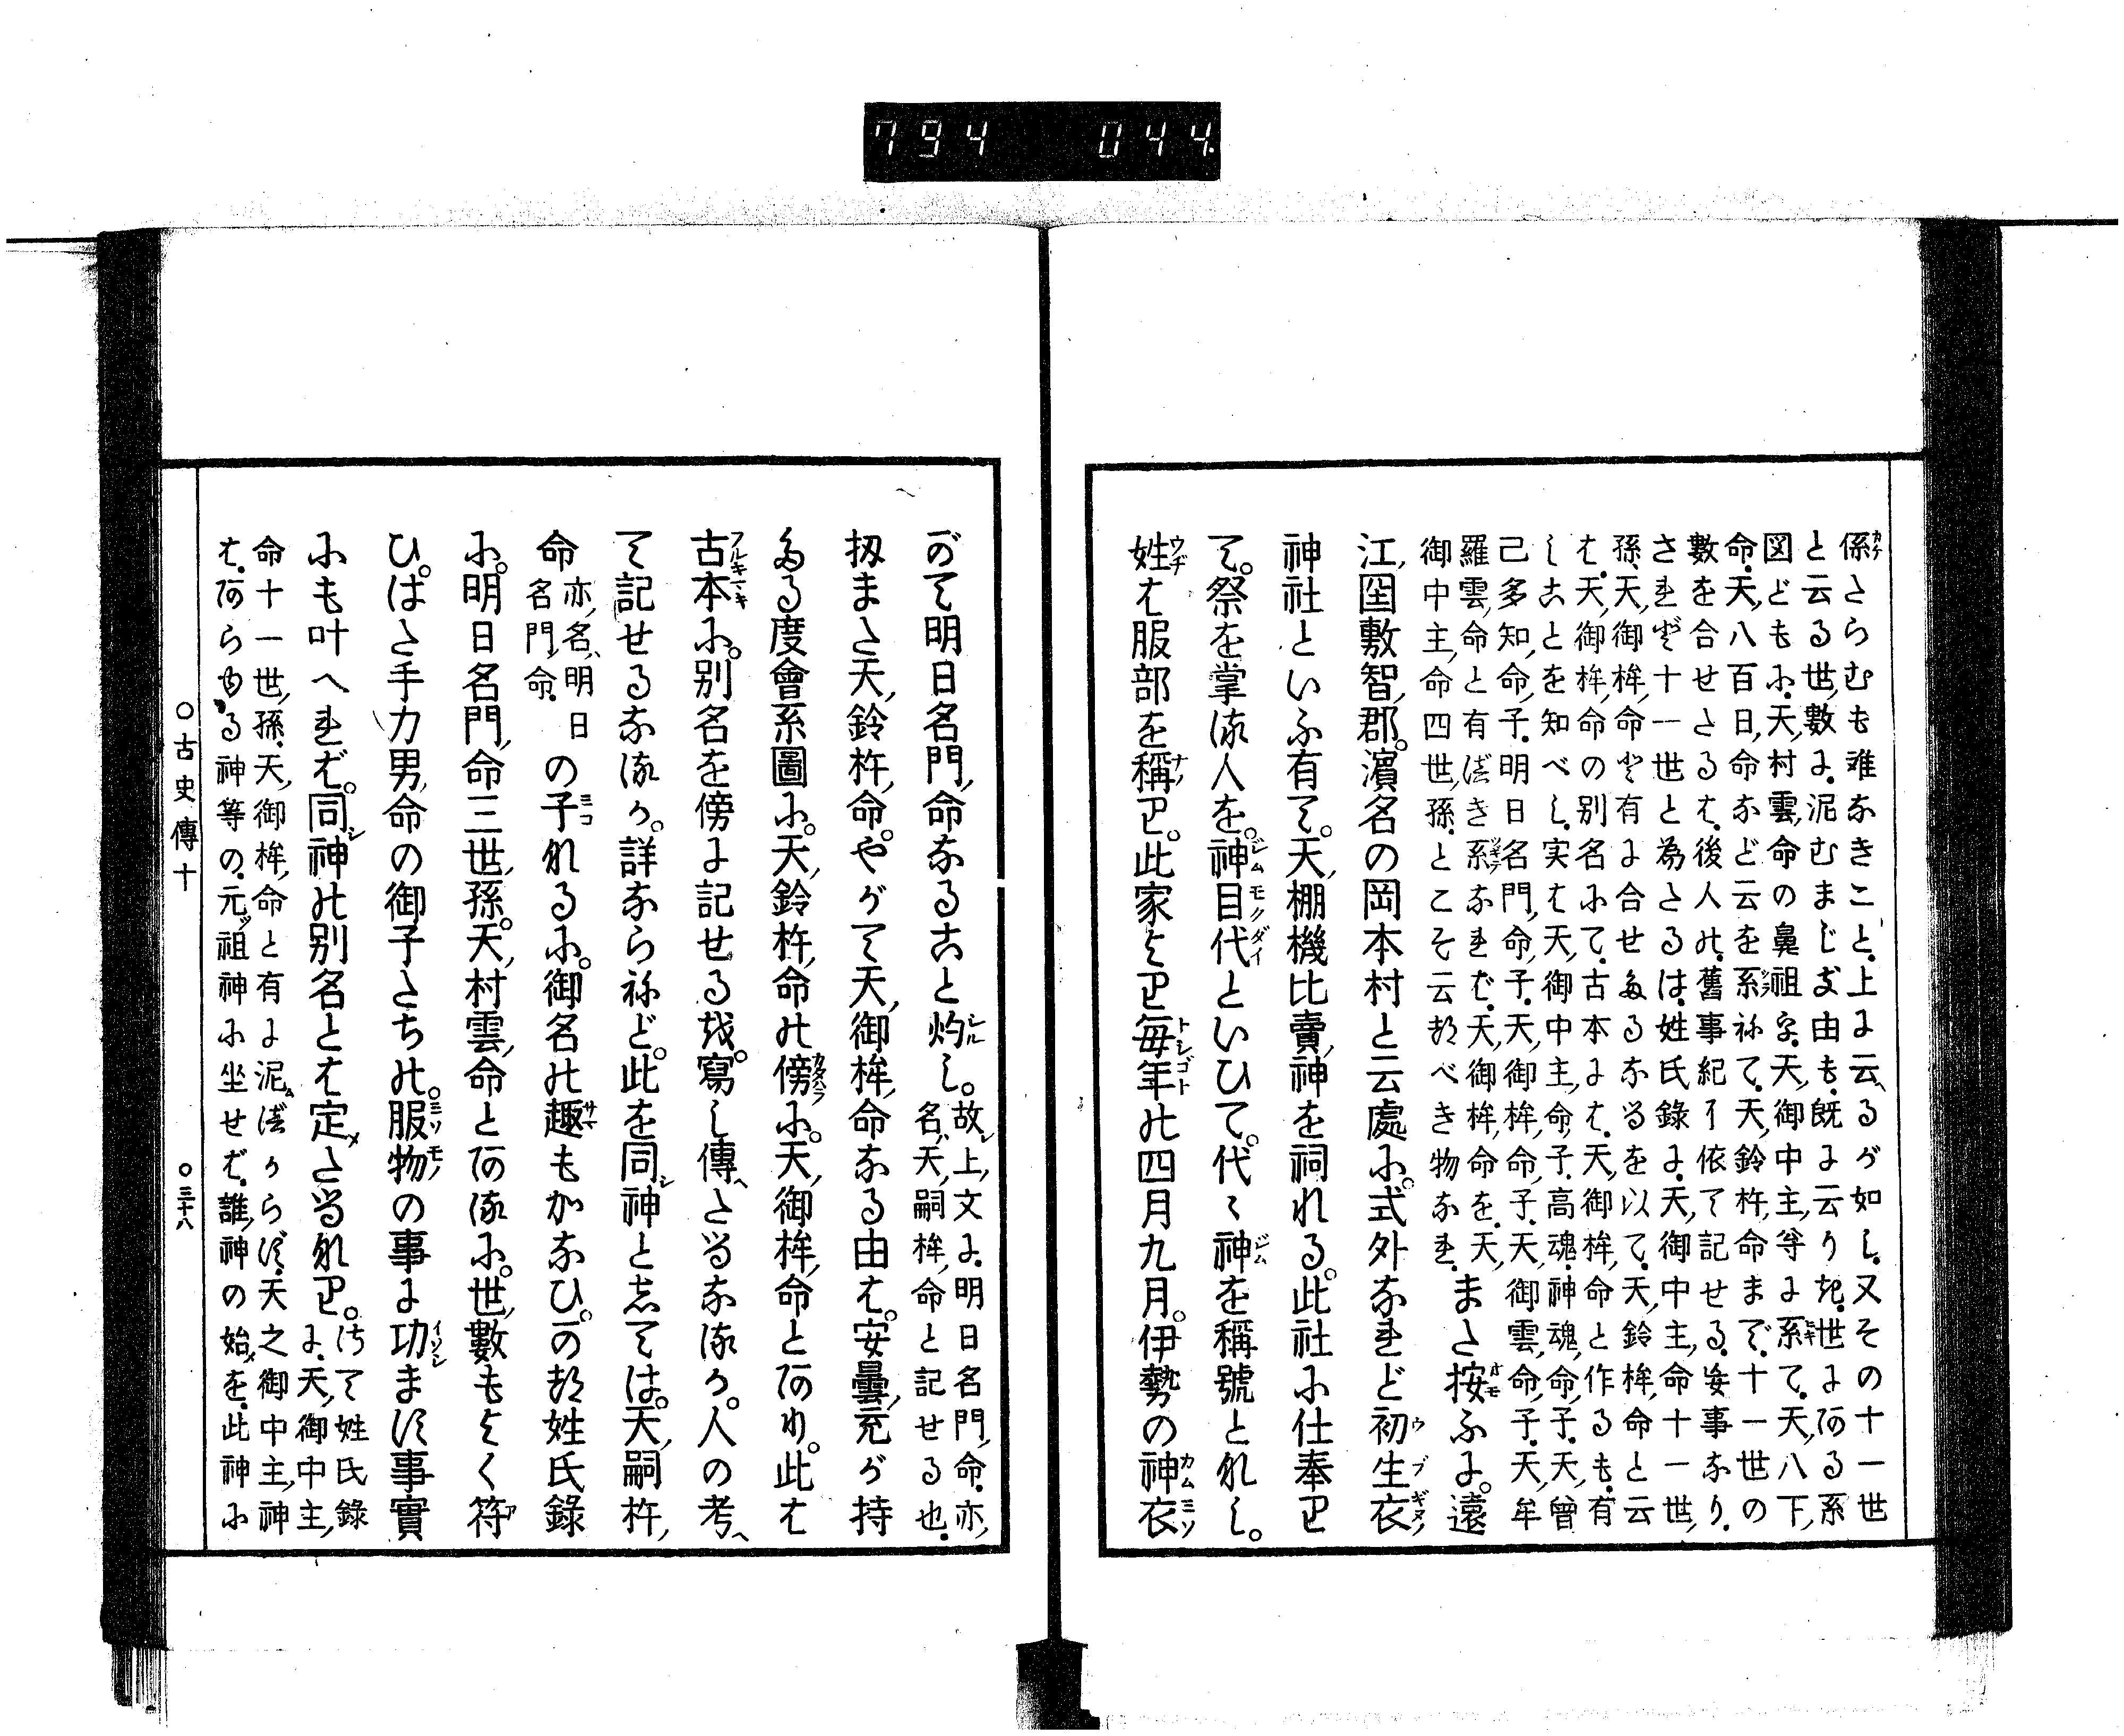 794 044
係さらむも難なきこと、上に云るが如し、又その十一世
と云る世數に、泥むまじき由も、既に云りき、世にある系
図どもに、天村雲命の鼻祖を、天御中主等に系て、天八下
命、天八百日命など云を系ねて、天鈴杵命まで、十一世の
數を合せたるは、後人の、舊事紀に依て記せる妄事なり、
されど十一世と為たるは、姓氏錄に、天御中主命十一世
孫、天御桙命と有に合せたるなるを以て、天鈴桙命と云
は、天御桙命の別名にて、古本には、天御桙命と作るも、有
しことを知べし、実は天御中主命、子高魂神魂命、子天曾
己多知命、子明日名門命、子天御桙命、子天御雲命、子天牟
羅雲命と有べき系なれば、天御桙命を、天
御中主命四世孫、とこそ云べき物なれ、また按ふに。遠
江國敷智郡。濱名の岡本村と云處に。式外なれど初生衣
神社といふ有て。天棚機比賣神を祠れる。此社に仕奉り
て。祭を掌る人を。神目代といひて。代々神を稱號とれし。
姓は服部を稱り。此家より毎年の四月九月。伊勢の神衣
がて明日名門命なること灼し。故上文に、明日名門命、亦
名、天嗣桙命と記せる也、
扨また天鈴杵命やがて天御桙命なる由は。安曇充が持
たる度會系圖に。天鈴杵命の傍に。天御桙命とあり。此は
古本に。別名を傍に記せるを。寫し傳へたるなるか。人の考へ
て記せるなるか。詳ならねど。此を同神と志ては。天嗣杵
命亦名、明日名門命、の子なるに。御名の趣もかなひ。かの姓氏錄
に。明日名門命三世孫。天村雲命とあるに。世數もよく符
ひ。はた手力男命の御子たちの。服物の事に功ます事實
にも叶へれば。同神の別名とは定めたるなり。さて姓氏錄に、天御中主
命十一世孫、天御桙命と有に泥むべからず、天之御中主神
は、あらゆる神等の、元祖神に坐せば、誰神の始を、此神に
○古史傳十 ○三十八